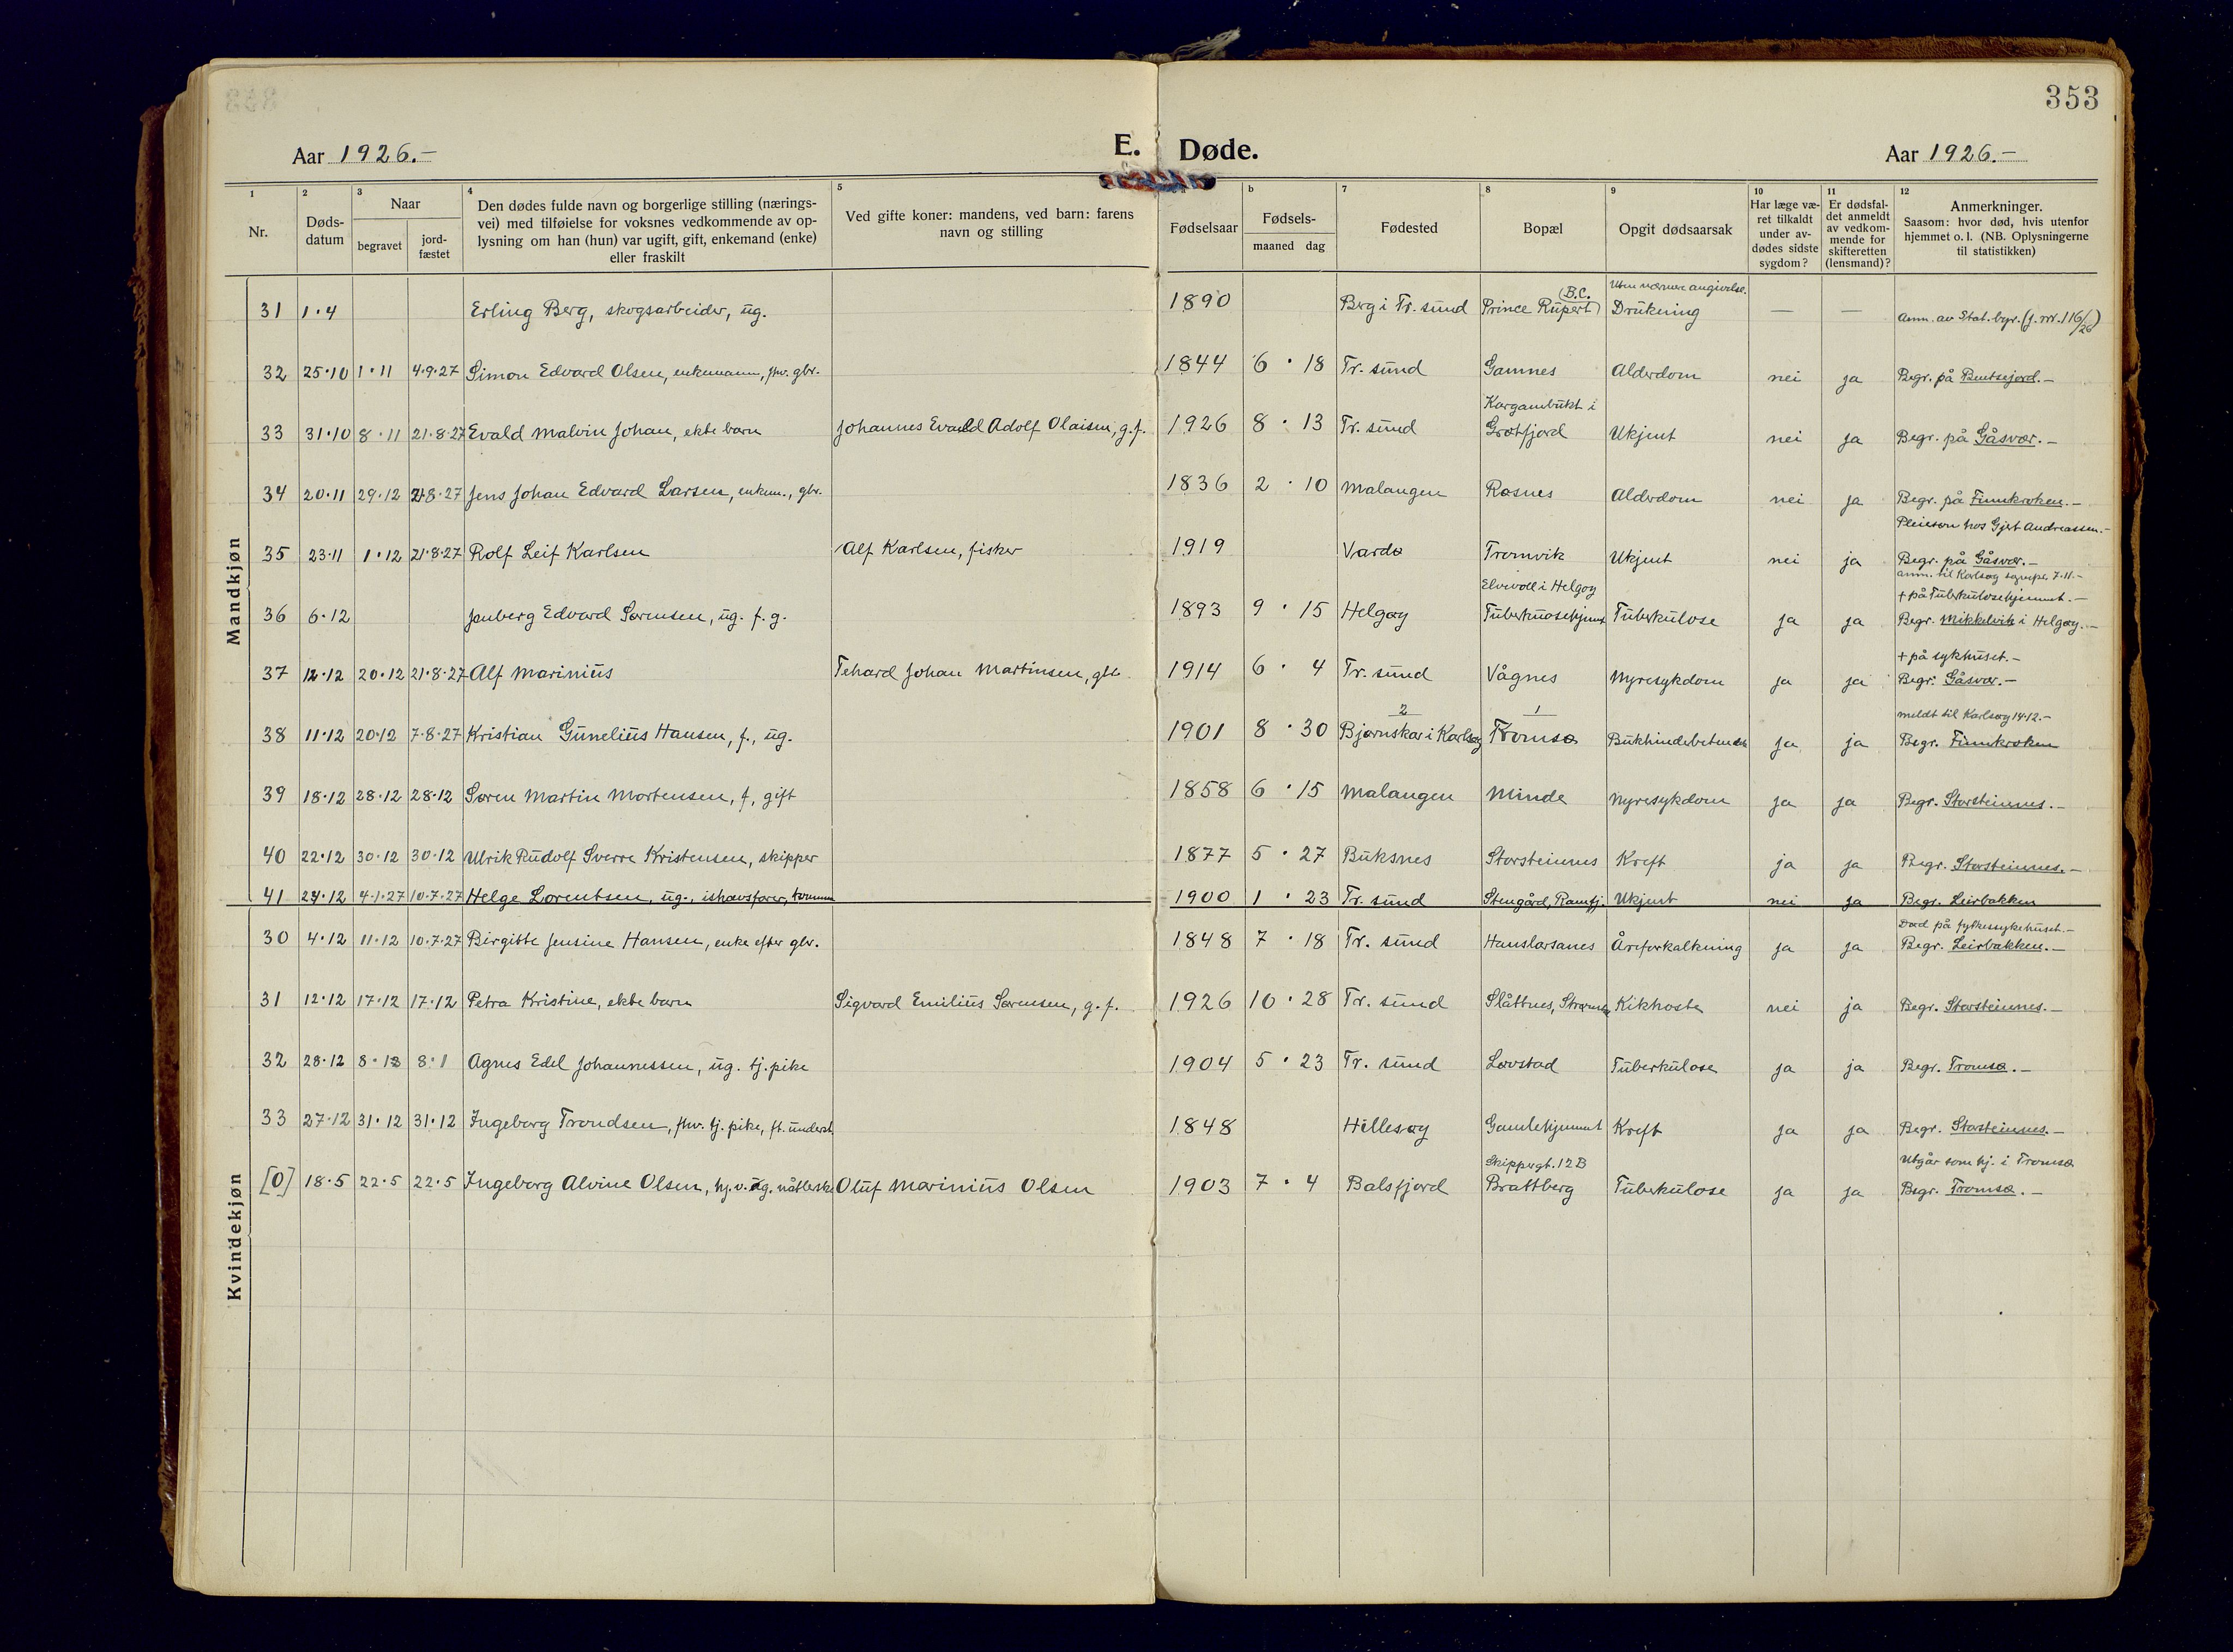 353
Aar 1926.-
E. Døde.
Aar 1926.-
1 2 3 4 5 b 7 8 9 10 11 12
Nr.
Døds-
datum
Naar
begravet
jord-
fæstet
Den dødes fulde navn og borgerlige stilling (nærings-
vei) med tilføielse for voksnes vedkommende av op-
lysning om han (hun) var ugift, gift, enkemand (enke)
eller fraskilt
Ved gifte koner: mandens, ved barn: farens
navn og stilling
Fødselsaar
Fødsels-
maaned dag
Fødested
Bopæl
Opgit dødsaarsak
Har læge væ-
ret tilkaldt
under av-
dødes sidste
sygdom?
Er dødsfal-
det anmeldt
av vedkom-
mende for
skifteretten
(lensmand)?
Anmerkninger.
Saasom: hvor død, hvis utenfor
hjemmet o. l. (NB. Oplysningerne
til statistikken)
Mandkjøn
B.C. Uten nærmere angivelse.
31 1·4 Erling Berg, skogsarbeider, ug. 1890 Berg i Tr. sund Prince Rupert) Drukning — — Anm. av Stat. byr. (j. nr. 116/26)
32 25·10 1·11 4·9·27 Simon Edvard Olsen, enkemann, fhv. gbr. 1844 6 · 18 Tr. sund Gamnes Alderdom nei ja Begr. på Bentsejord.-
Kargambukt i
33 31·10 8·11 21·8·27 Evald Malvin Johan, ekte barn Johannes Evald Adolf Olaisen, g.f. 1926 8 · 13 Tr. sund Grøtfjord Ukjent nei ja Begr. på Gåsvær.-
34 20·11 29·12 21·8·27 Jens Johan Edvard Larsen, enkem., gbr. 1836 2 · 10 Malangen Røsnes Alderdom nei ja Begr. på Finnkroken.-
Pleiesøn hos Gjert Andreassen.-
35 23·11 1·12 21·8·27 Rolf Leif Karlsen Alf Karlsen, fisker 1919 Vardø Tromvik Ukjent nei ja Begr. på Gåsvær.-
anm. til Karlsøy sognepr. 7·11.-
Elvevoll i Helgøy + på Tuberkulosehjemmet.-
36 6·12 Jenberg Edvard Sørensen, ug. f. g. 1893 9 · 15 Helgøy Tuberkulosehjemmet Tuberkulose ja ja Begr. Mikkelvik i Helgøy.-
+ på sykhuset.-
37 12·12 20·12 21·8·27 Alf Marinius Tehard Johan Martinsen, gbr. 1914 6 · 4 Tr. sund Vågnes Nyresykdom ja ja Begr. Gåsvær.-
2 1 meldt til Karlsøy 14·12.-
38 11·12 20·12 7·8·27 Kristian Gunelius Hansen, f., ug. 1901 8 · 30 Bjørnskar i Karlsøy Tromsø Bukhindebetendelse ja ja Begr. Finnkroken
39 18·12 28·12 28·12 Søren Martin Mortensen, f, gift 1858 6 · 15 Malangen Minde Nyresykdom ja ja Begr. Storsteinnes.-
40 22·12 30·12 30·12 Ulrik Rudolf Sverre Kristensen, skipper 1877 5 · 27 Buksnes Storsteinnes Kreft ja ja Begr. Storsteinnes.-
41 24·12 4·1·27 10·7·27 Helge Lorentsen, ug., ishavsfarer, tømmerm 1900 1 · 23 Tr. sund Stengård, Ramfj. Ukjent nei ja Begr. Leirbakken
Kvindekjøn
Død på fylkessykehuset.-
30 4·12 11·12 10·7·27 Birgitte Jensine Hansen, enke efter gbr. 1848 7 · 18 Tr. sund Hanslarsanes Åreforkalkning ja ja Begr. Leirbakken.-
31 12·12 17·12 17·12 Petra Kristine, ekte barn Sigvard Emilius Sørensen, g.f. 1926 10 · 28 Tr. sund Slåttnes, Kikhoste nei ja Begr. Storsteinnes.-
32 28·12 8·1 8·1 Agnes Edel Johannessen, ug. tj. pike 1904 5 · 23 Tr. sund Løvstad Tuberkulose ja ja Begr. Tromsø.-
33 27·12 31·12 31·12 Ingeborg Trondsen, fhv. tj. pike, ft. underst. 1848 Hillesøy Gamlehjemmet Kreft ja ja Begr. Storsteinnes.-
Skippergt. 12 B Utgår som hj. i Tromsø
[0] 18·5 22·5 22·5 Ingeborg Alvine Olsen, hj.v. ug. Oluf Marinius Olsen 1903 7 · 4 Balsfjord Brattberg Tuberkulose ja ja Begr. Tromsø.-